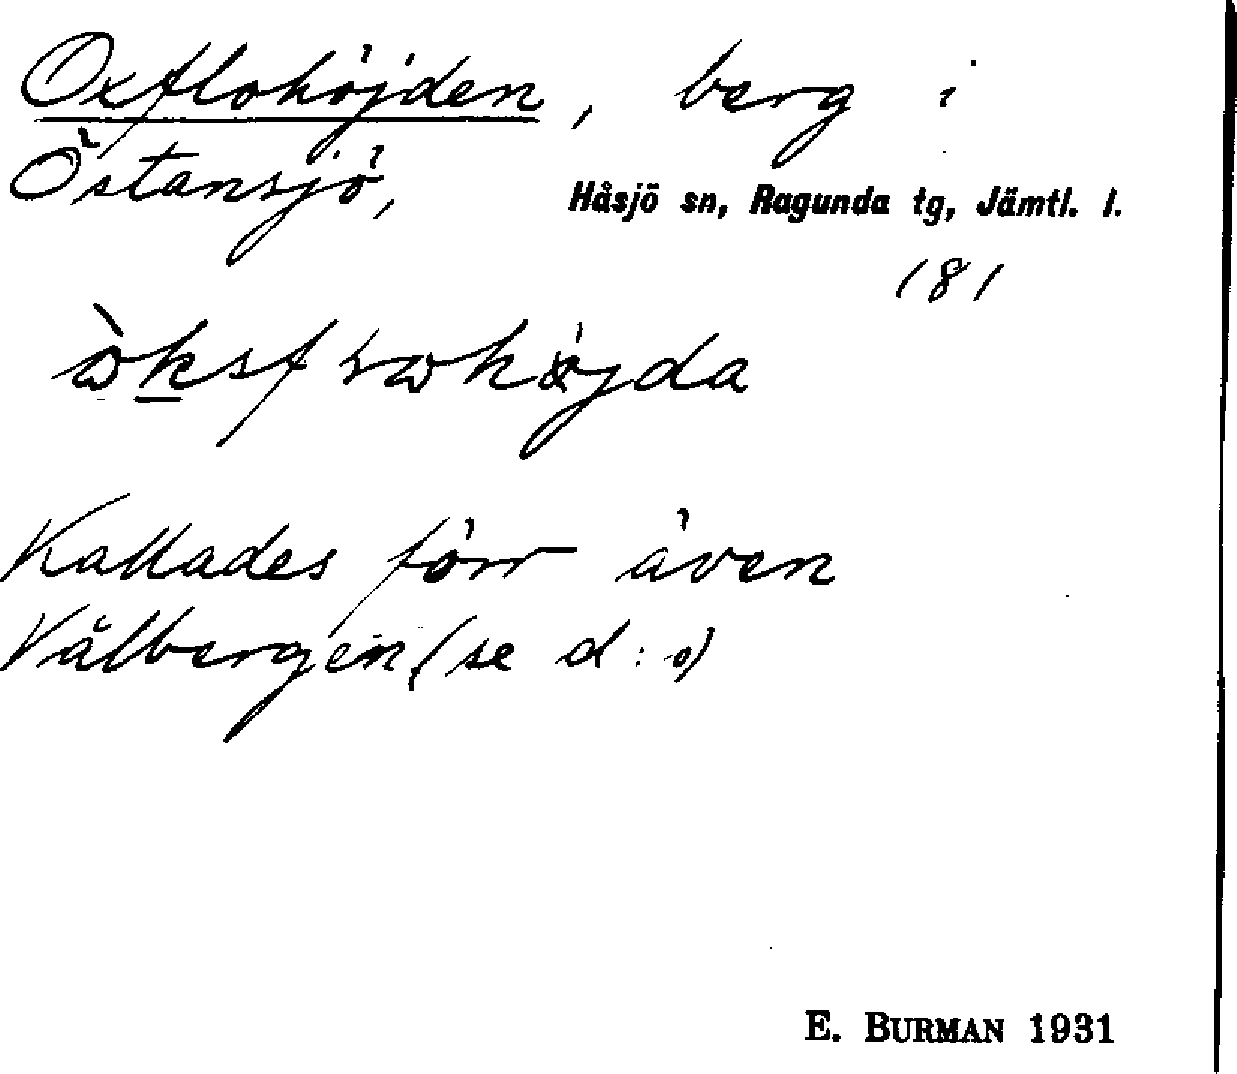 Oxflohöjden, berg i
Östansjö, Håsjö sn, Ragunda tg, Jämtl. l.
181
Kallades förr även
Vålbergen (se d:o)
E. BURMAN 1931